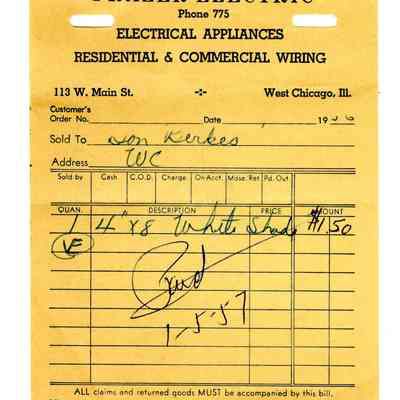 Phone 775
ELECTRICAL APPLIANCES
RESIDENTIAL & COMMERCIAL WIRING
113 W. Main St. -:- West Chicago, Ill.
Customer's
Order No. Date 1956
Sold To Don Kerkes
Address WC
Sold by Cash C.O.D. Charge On Acct. Mdse. Ret Pd. Out
QUAN. DESCRIPTION PRICE AMOUNT
1 4'x8 White Shade $1.50
VE
1-5-57
ALL claims and returned goods MUST be accompanied by this bill.